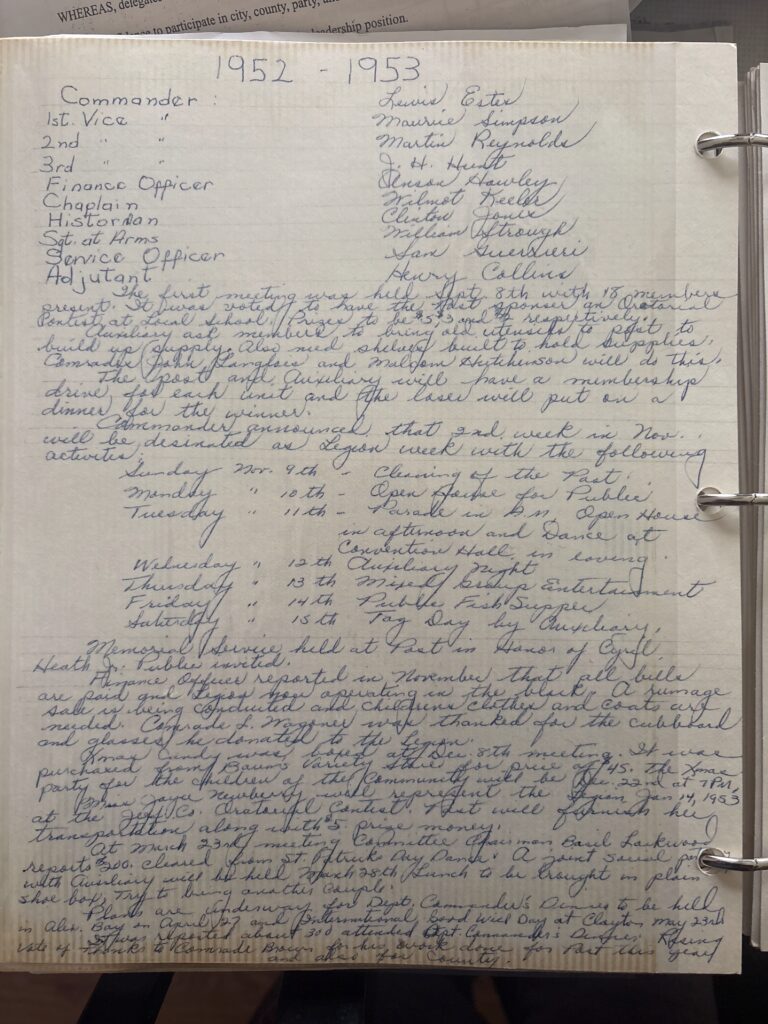 WHEREAS, delegate
to participate in city, county, party, an
leadership position.
1952 - 1953
Commander : Lewis Estes
1st. Vice " Maurice Simpson
2nd " " Martin Reynolds
3rd " " J. H. Hunt
Finance Officer Benson Hawley
Chaplain Wilmot Keeler
Historian Clinton Jones
Sgt. at Arms William Strough
Service Officer Sam Guerrieri
Adjutant Henry Collins
The first meeting was held Sept 8th with 18 members
present. It was voted to have the Post sponser an Oratorial
Contest at Local School. Prizes to be $5, $3 and $2 respertively.
Auxiliary ask members to bring old utensils to post to
build up supply. Also need shelves built to hold supplies.
Comrades John Langlois and Malcom Hutchenson will do this.
The post and Auxiliary will have a membership
drive for each unit and the loser will put on a
dinner for the winner.
Commander announced that 2nd week in Nov.
will be desinated as Legion week with the following
activites:
Sunday Nov. 9th - Cleaning of the Post.
Monday " 10th - Open House for Public
Tuesday " 11th - Parade in A.M. Open House
in afternoon and Dance at
Convention Hall in evening.
Wednesday " 12th Auxiliary Night
Thursday " 13th Mixed Group Entertainment
Friday " 14th Public Fish Supper
Saturday " 15th Tag Day by Auxiliary.
Memorial Service held at Post in Honor of Cyril
Heath Jr. Public invited.
Finance Officer reported in November that all bills
are paid and Legion now operating in the black. A rumage
sale is being conducted and childrens clothes and coats are
needed. Comrade L. Wagoner was thanked for the cubboard
and glasses he donated to the Legion.
Xmas Candy was boxed at Dec. 8th meeting. It was
purchased from Baums Variety Store for price of $45. the Xmas
party for the children of the Community will be Dec. 22nd at 7PM.
Miss Jayne Newberry will represent the Legion Jan 14, 1953
at the Jeff. Co. Oratorical Contest. Post will furnish her
transportation along with $5 prize money.
At March 23rd meeting Committee Chairman Basil Lockwood
reports $200. cleared from St. Patricks Day Dance. A joint social
with Auxiliary will be held March 28th Lunch to be brought in plain
shoe box, Try to bring another Couple.
Plans are underway for Dept. Commander's Dinner to be held
in Alex. Bay on April 27 and International Good Will Day at Clayton May 23rd
It was reported about 300 attended Dept Commander's Dinner Rosing
vote of thanks to Comrade Brown for his work done for Post this year
and also for County.